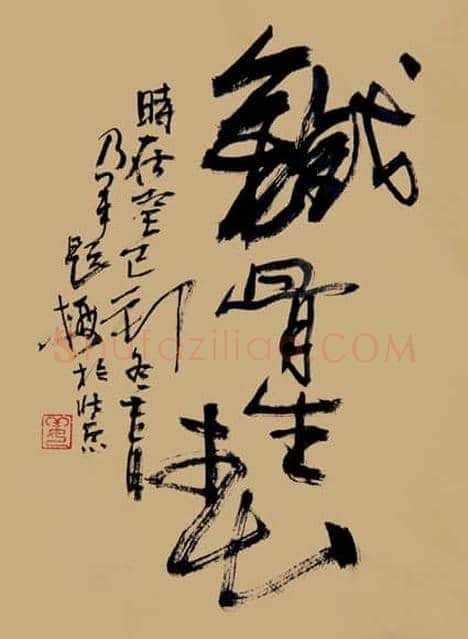 鐵骨生春
時在巳初冬吉日
乃題梅於北京
Shufaziliao.com